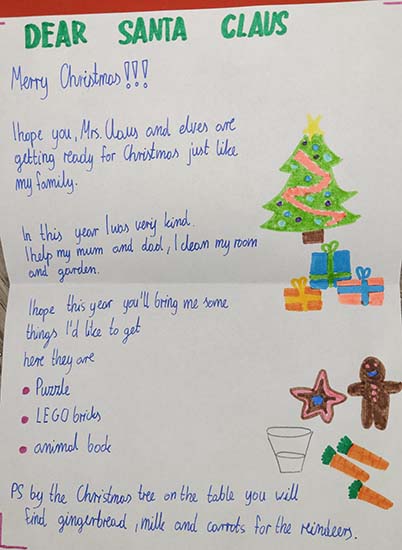 DEAR SANTA CLAUS
Merry Christmas!!!
I hope you, Mrs. Claus and elves are
getting ready for Christmas just like
my family.
In this year I was very kind.
I help my mum and dad, I clean my room
and garden.
I hope this year you'll bring me some
things I'd like to get
here they are
• Puzzle
• LEGO bricks
• animal book
PS by the Christmas tree on the table you will
find gingerbread, milk and carrots for the reindeers.